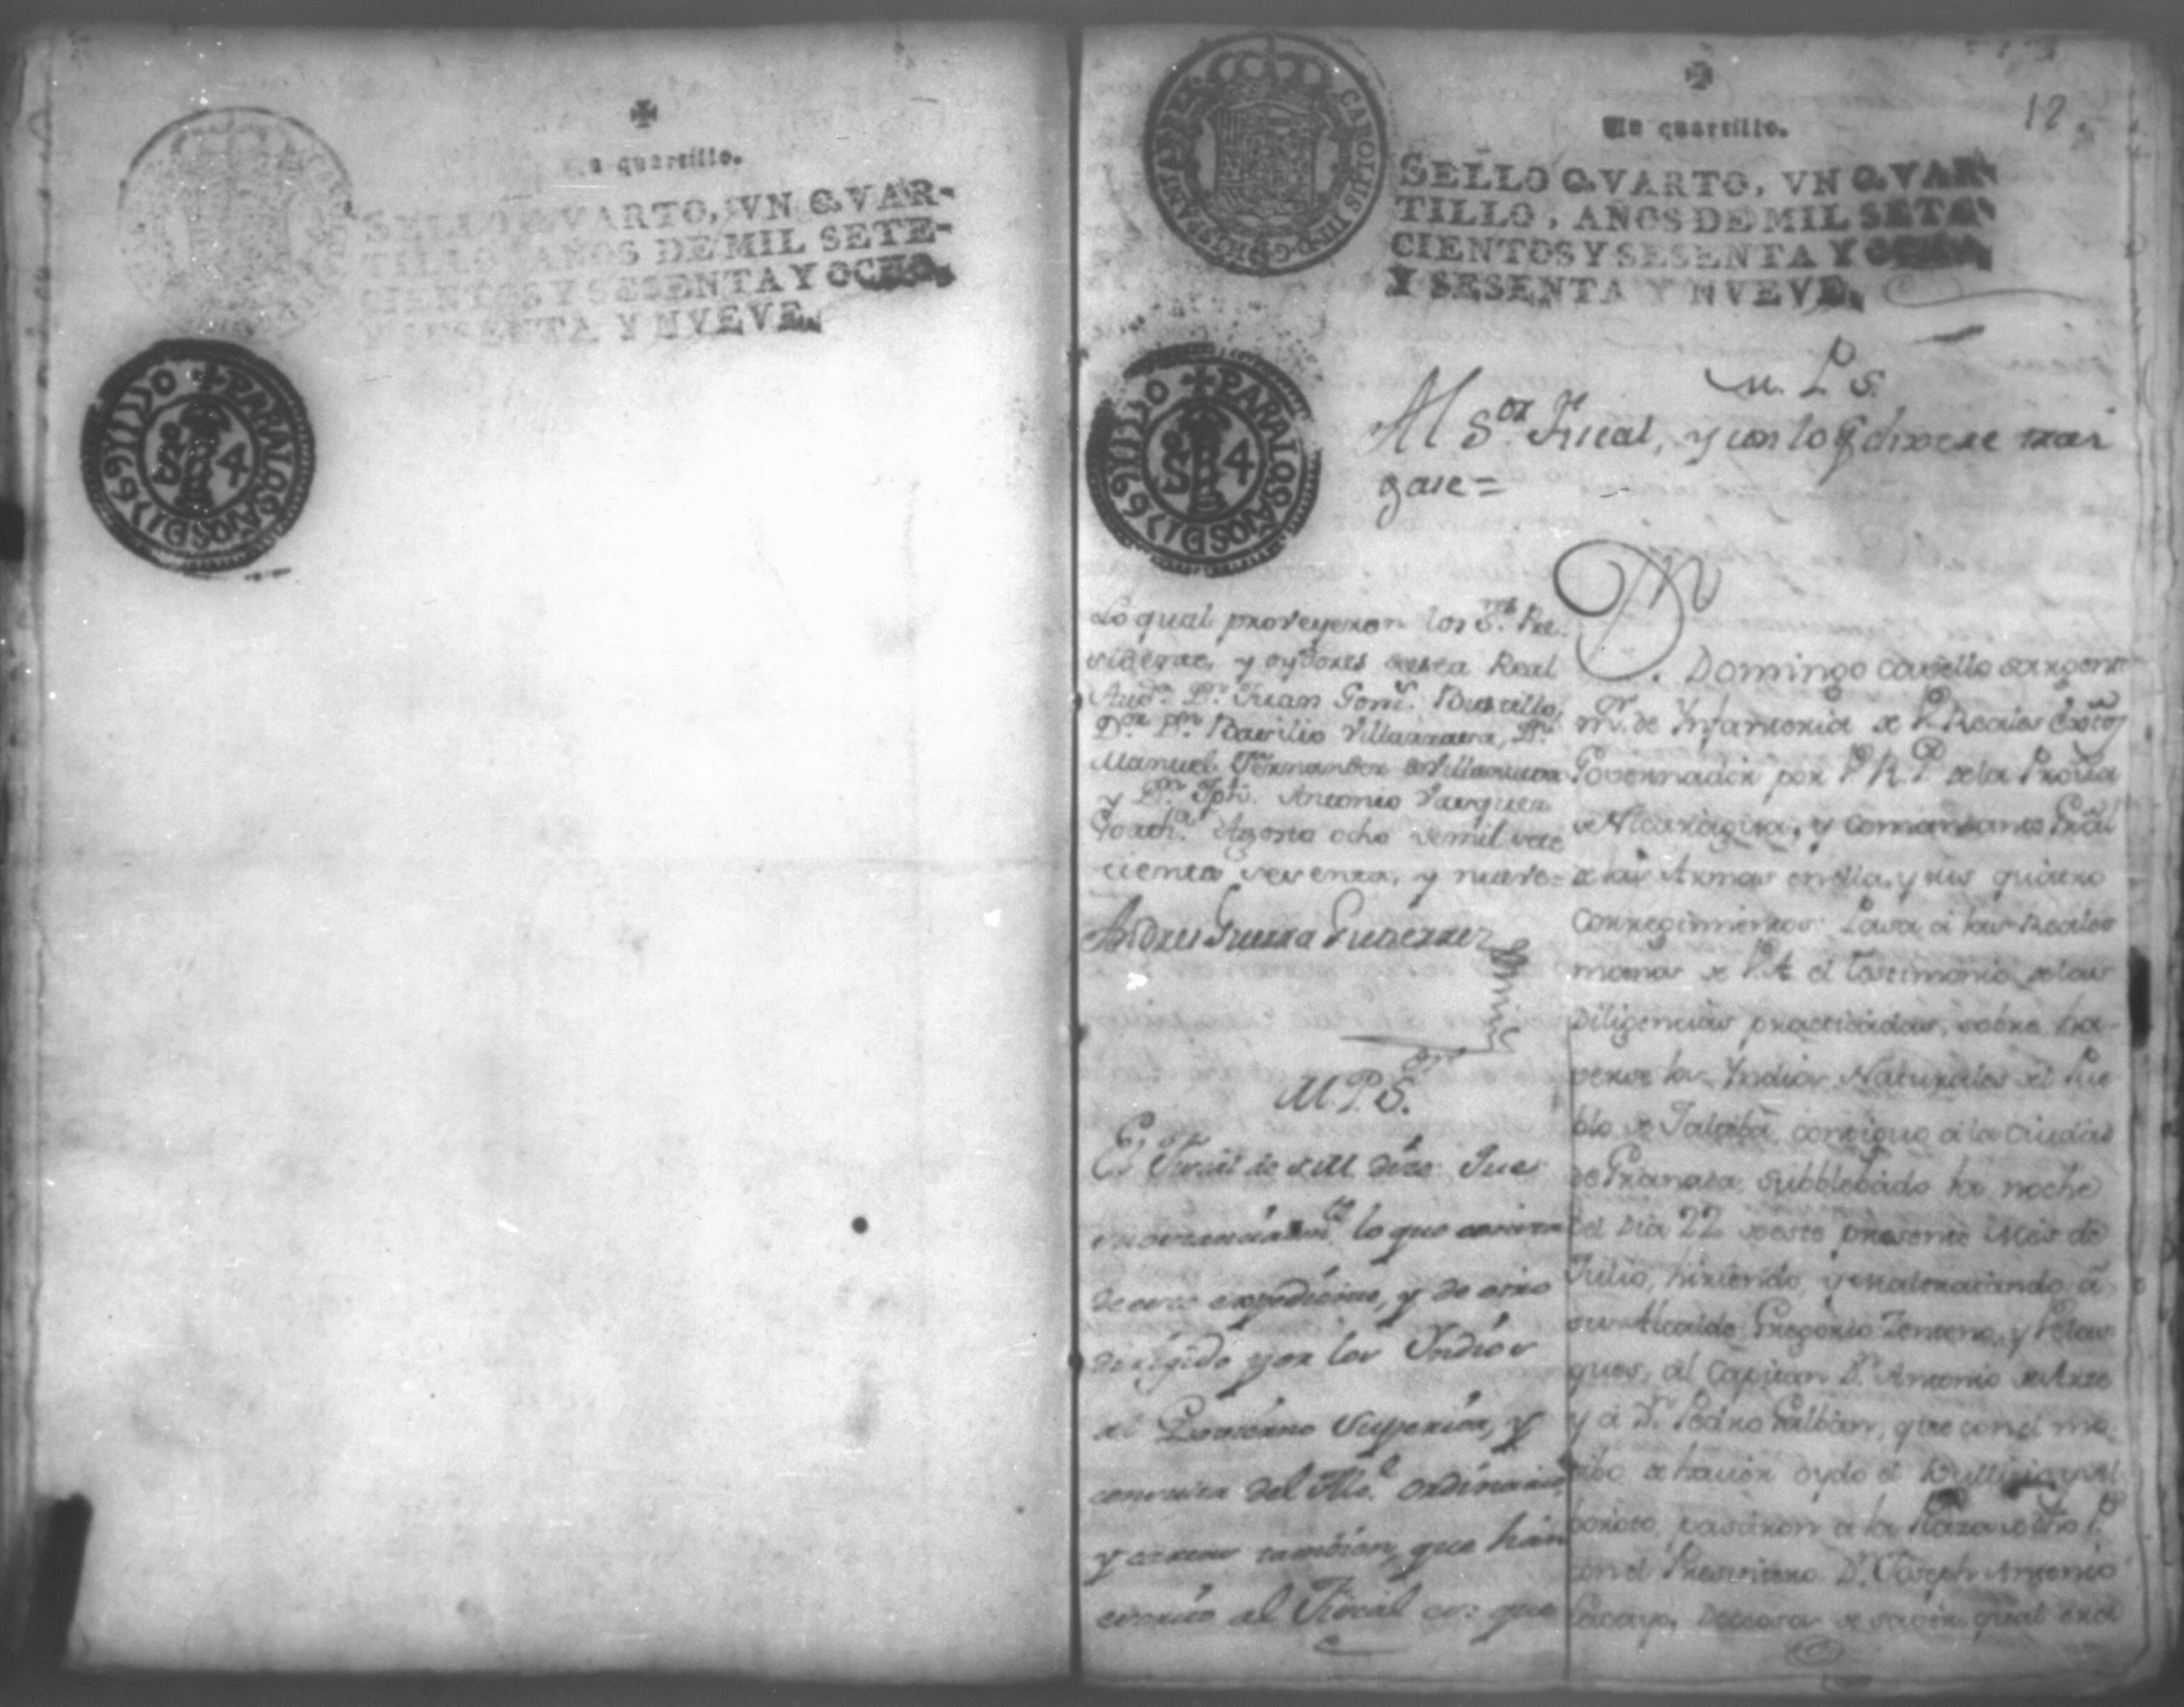 Un quartillo.
SELLO QVARTO, VN QVAR-
TILLO, AÑOS DE MIL SETE-
CIENTOS Y SESENTA Y OCHO,
Y SESENTA Y NVEVE.
+PARALOSAÑOSD1769
S 4
12
Un quartillo.
SELLO QVARTO, VN QVAR-
TILLO, AÑOS DE MIL SETE-
CIENTOS Y SESENTA Y OCHO,
Y SESENTA Y NVEVE.
CAROLUS III D G HISPAN
+PARALOSAÑOSD1769
S 4
M. P. S.
Al S.or Fiscal, y con lo q dixere trai
gase=
Lo qual proveyeron los S.res Pre
sidente, y oydores desta Real
Aud.a D.n Juan Gonz. Bustillo,
D.or D.n Basilio Villarrasa, D.n
Manuel Fernandez de Villanueva
y D.n Jph. Antonio Vasquez
Goath.a Agosto ocho de mil sete
cientos sesenta, y nueve=
Andres Guerra Gutierrez
M. P. S.or
El Fiscal de S.M. dize: Que
substanciam.te lo que consta
de este expediente, y de otro
dirigido por los Indios
al Govierno Superior, y
consulta del Alc.e ordinario,
y cartas tambien, que han
escrito al Fiscal es: que
Dn
Domingo Cavello Sargento
m.or de Infanteria de los Reales Exto.s
Governador por S. M. de la Prov.a
de Nicaragua, y Comandante Gral
de las Armas en ella, y sus quatro
Corregimientos: Pasa á las Reales
manos de V.A. el testimonio de las
Diligencias practicadas, sobre ha-
verse los Indios Naturales del Pue
blo de Jalteba, contiguo á la Ciudad
de Granada, subblebado la noche
del dia 22 de este presente Mes de
Julio, hiriendo, y maltratando á
su Alcalde Gregorio Zenteno, y
al Capitan D.n Antonio de Arze
y á D.n Pedro Galban, que con el mo
tibo de haver oydo el Bullicio, y al
boroto, pasaron á la Plaza de dho P.o
con el Presvitero D.n Joseph Antonio
Lacayo, Deseosa de saver, qual era